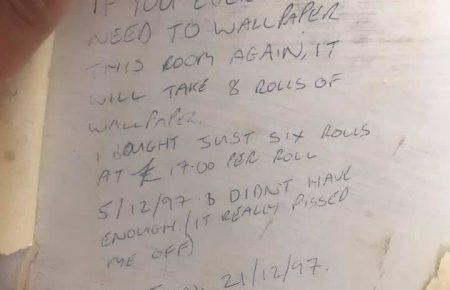 IF YOU EVER
NEED TO WALLPAPER
THIS ROOM AGAIN, IT
WILL TAKE 8 ROLLS OF
WALLPAPER.
I BOUGHT JUST SIX ROLLS
AT £17.00 PER ROLL
5/12/97 & DIDN'T HAVE
ENOUGH. (IT REALLY PISSED
ME OFF)
21/12/97.